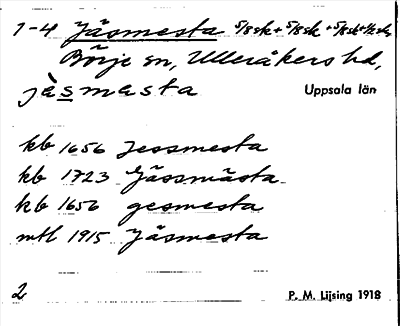 1-4 Jäsmesta 5/8 sk + 5/8 sk + 5/8 sk + 1/2 sk,
Börje sn, Ulleråkers hd,
jä̀smesta Uppsala län
kb 1656 Jessmesta
kb 1723 Jässmästa
kb 1656 gesmesta
mtl 1915 Jäsmesta
2 P. M. Lijsing 1918